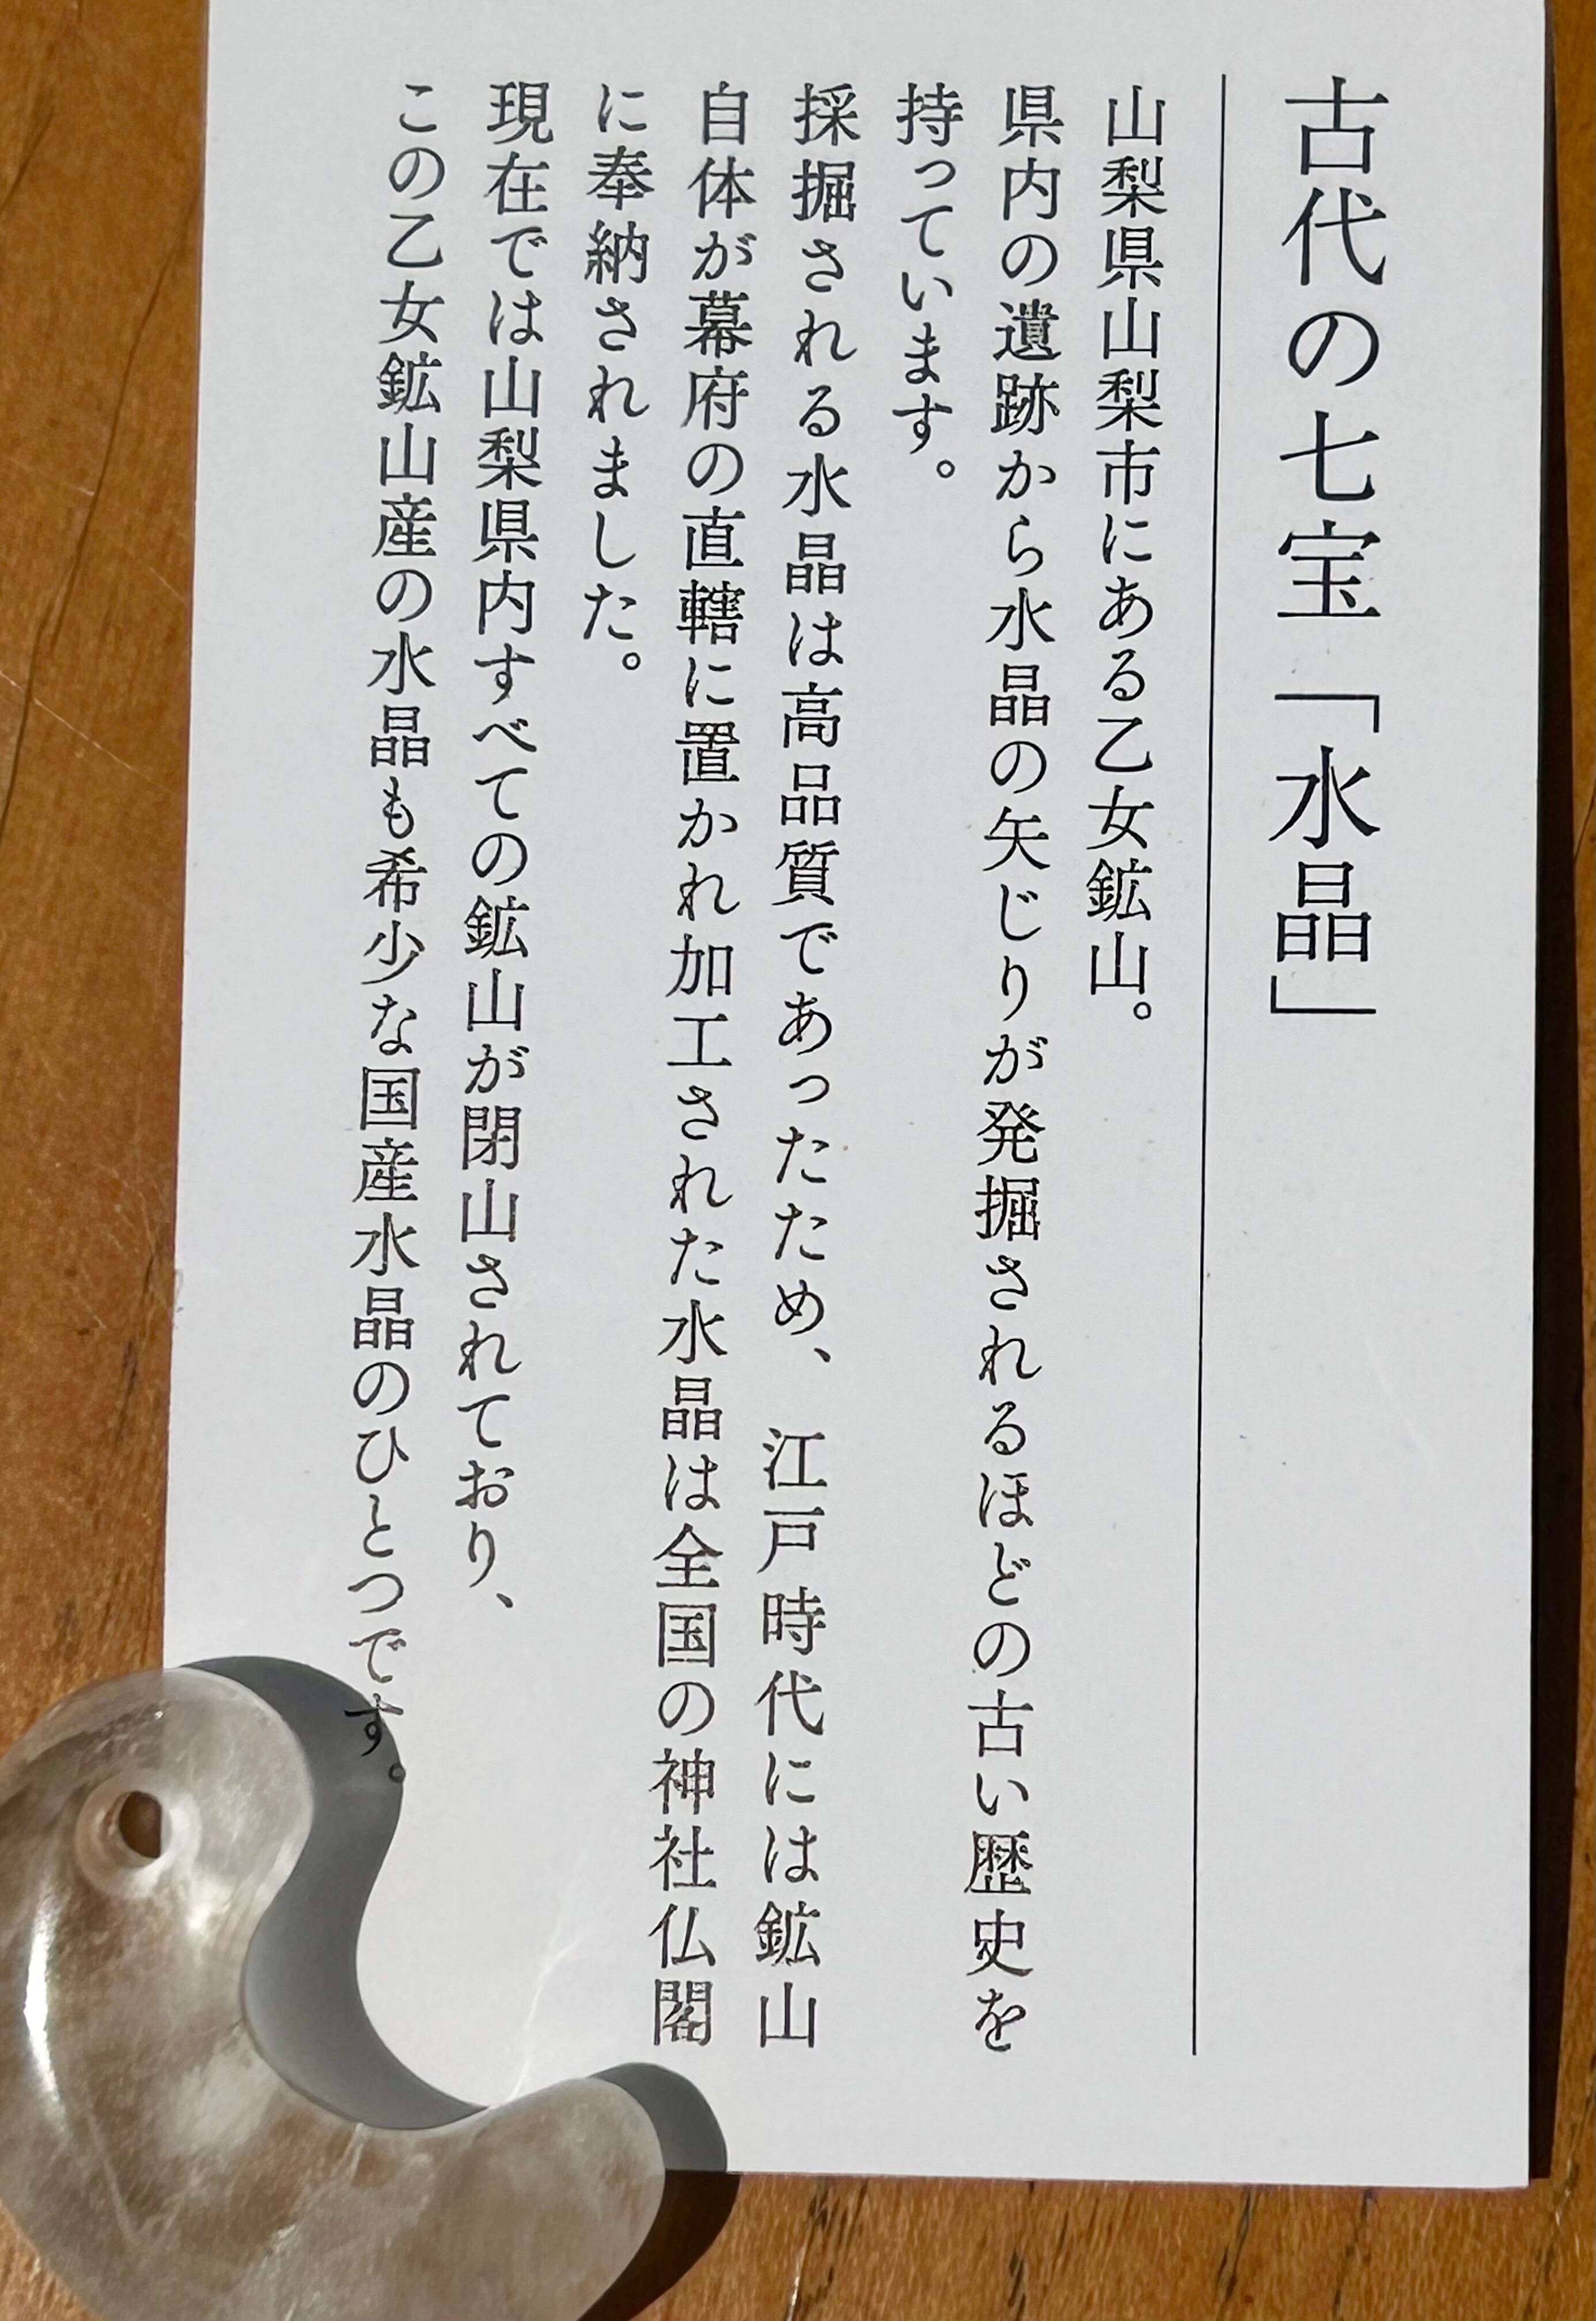 古代の七宝「水晶」
山梨県山梨市にある乙女鉱山。
県内の遺跡から水晶の矢じりが発掘されるほどの古い歴史を
持っています。
採掘される水晶は高品質であったため、江戸時代には鉱山
自体が幕府の直轄に置かれ加工された水晶は全国の神社仏閣
に奉納されました。
現在では山梨県内すべての鉱山が閉山されており、
この乙女鉱山産の水晶も希少な国産水晶のひとつです。